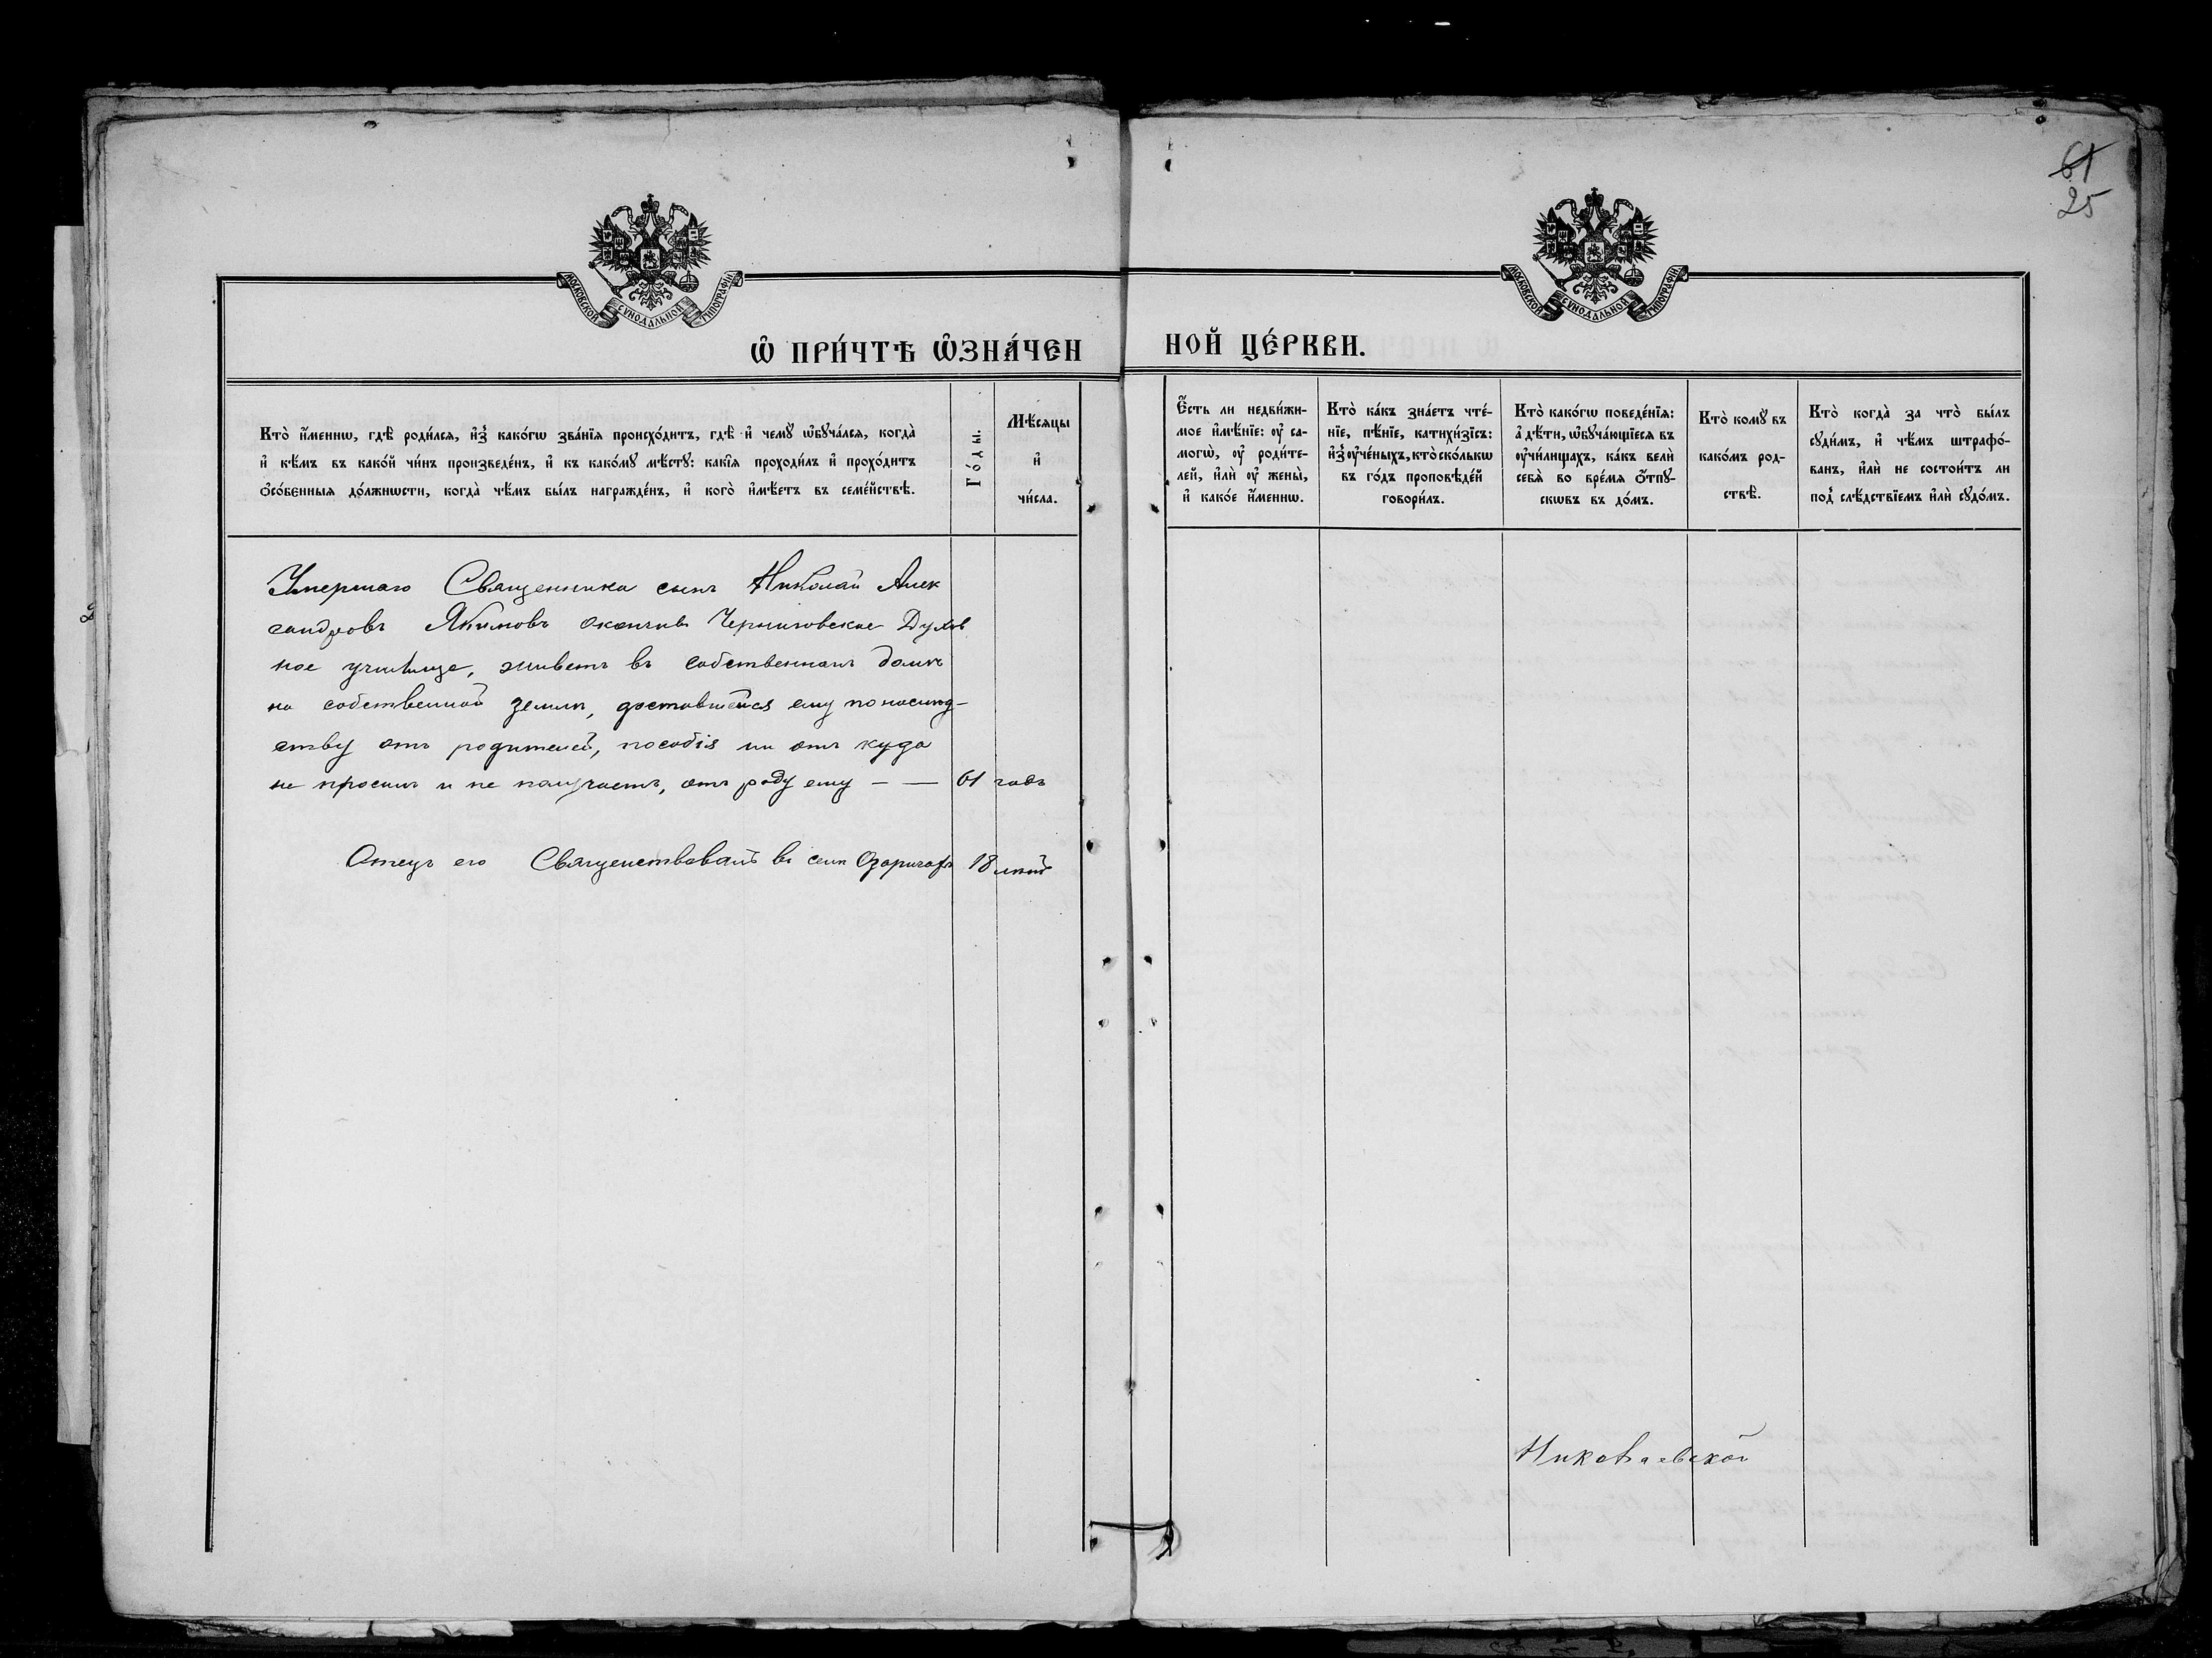 61
25
МОСКОВСКОЙ СѴНОДАЛЬНОЙ ТИПОГРАФІИ
МОСКОВСКОЙ СѴНОДАЛЬНОЙ ТИПОГРАФІИ
Ѽ ПРИ́ЧТѢ Ѽ҆ЗНА́ЧЕН НОЙ ЦЕ́РКВИ.
Кто̀ и҆́меннѡ, гдѣ̀ роди́лсѧ, и҆з̾ како́гѡ зва́нїѧ происхо́дитъ, гдѣ̀ и҆ чемꙋ̀ ѡ҆бꙋча́лсѧ, когда̀
и҆ кѣ́мъ въ како́й чи́нъ произведе́нъ, и҆ къ како́мꙋ мѣ́стꙋ: какі̑ѧ проходи́лъ и҆ прохо́дитъ
ѻ҆со́бенныѧ до́лжнѡсти, когда̀ чѣ́мъ бы́лъ награжде́нъ, и҆ кого̀ и҆мѣ́етъ въ семе́йствѣ.
Го́ды.
Мѣ́сѧцы
и҆
чи́сла.
Є҆́сть ли недви́жи-
мое и҆мѣ́нїе: ᲂу҆ са-
могѡ̀, ᲂу҆ роди́те-
лей, и҆лѝ ᲂу҆ жены̀,
и҆ како́е и҆́меннѡ.
Кто̀ ка́къ зна́етъ чте́-
нїе, пѣ́нїе, катихи́зїсъ:
и҆з̾ ᲂу҆че́ныхъ, кто̀ ско́лькѡ
въ го́дъ проповѣ́дей
говори́лъ.
Кто̀ како́гѡ поведе́нїѧ:
а҆ дѣ́ти, ѡ҆бꙋча́ющїесѧ въ
ᲂу҆чи́лищахъ, ка́къ велѝ
себѧ̀ во вре́мѧ ѿпꙋ-
скѡвъ въ до́мъ.
Кто̀ комꙋ̀ въ
како́мъ род-
ствѣ̀.
Кто̀ когда̀ за что̀ бы́лъ
сꙋди́мъ, и҆ чѣ́мъ штрафо́-
ванъ, и҆лѝ не состои́тъ ли
под̾ слѣ́дствїемъ и҆лѝ сꙋдо́мъ.
Умершаго Священника сынъ Николай Алек
сандровъ Якимовъ окончивъ Черниговское Духов
ное училище, живетъ въ собственномъ домѣ
на собственной землѣ, доставшейся ему по наслѣд-
ству отъ родителей, пособія ни отъ куда
не просилъ и не получаетъ, отъ роду ему — — 61 годъ
Отецъ его Священствовалъ въ селѣ Озаричахъ 18 лѣтъ
Николаевской